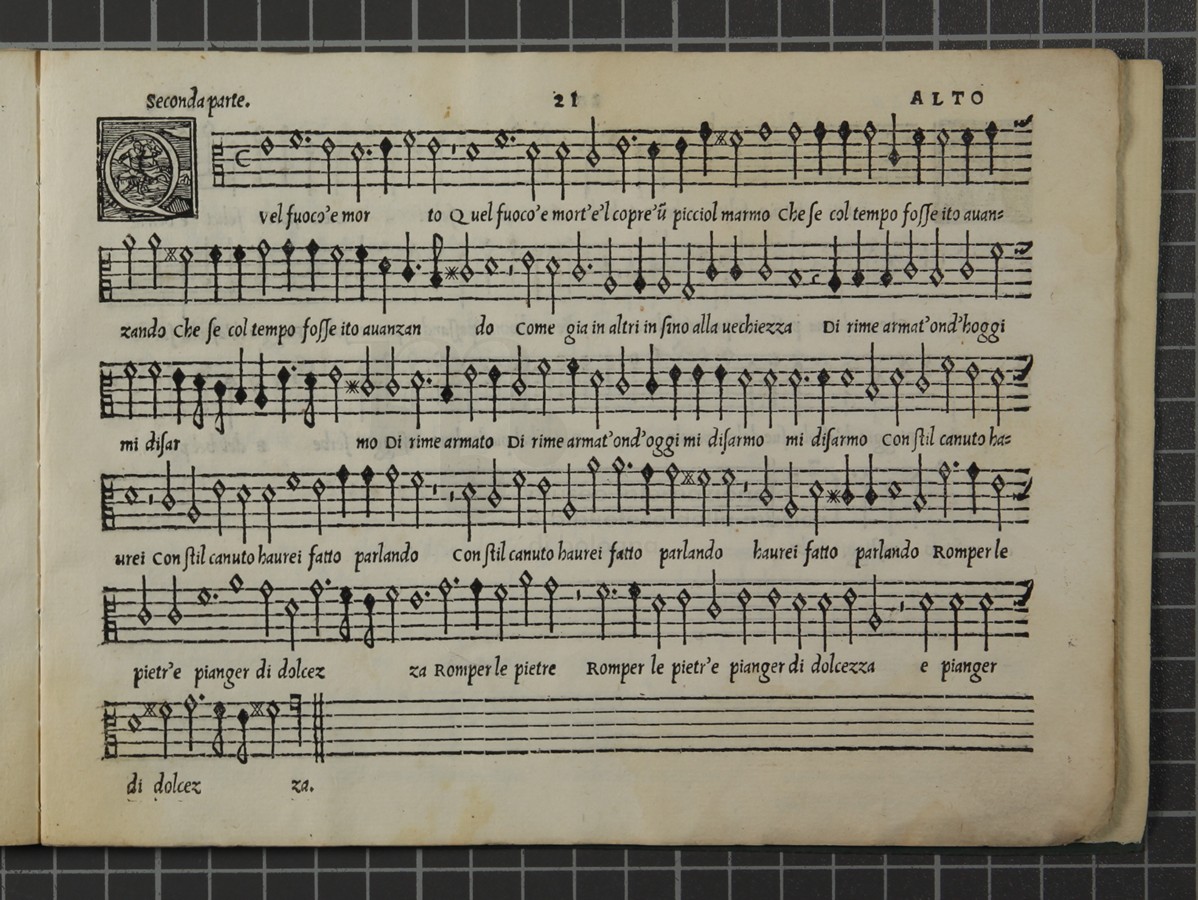 Seconda parte. 21 ALTO
QVel fuoco'e mor to Quel fuoco'e mort'e'l copre'ũ picciol marmo Che se col tempo fosse ito auan=
zando Che se col tempo fosse ito auanzan do Come gia in altri in sino alla uechiezza Di rime armat'ond'hoggi
mi disar mo Di rime armato Di rime armat'ond'oggi mi disarmo mi disarmo Con stil canuto ha=
urei Con stil canuto haurei fatto parlando Con stil canuto haurei fatto parlando haurei fatto parlando Romper le
pietr'e pianger di dolcez za Romper le pietre Romper le pietr'e pianger di dolcezza e pianger
di dolcez za.